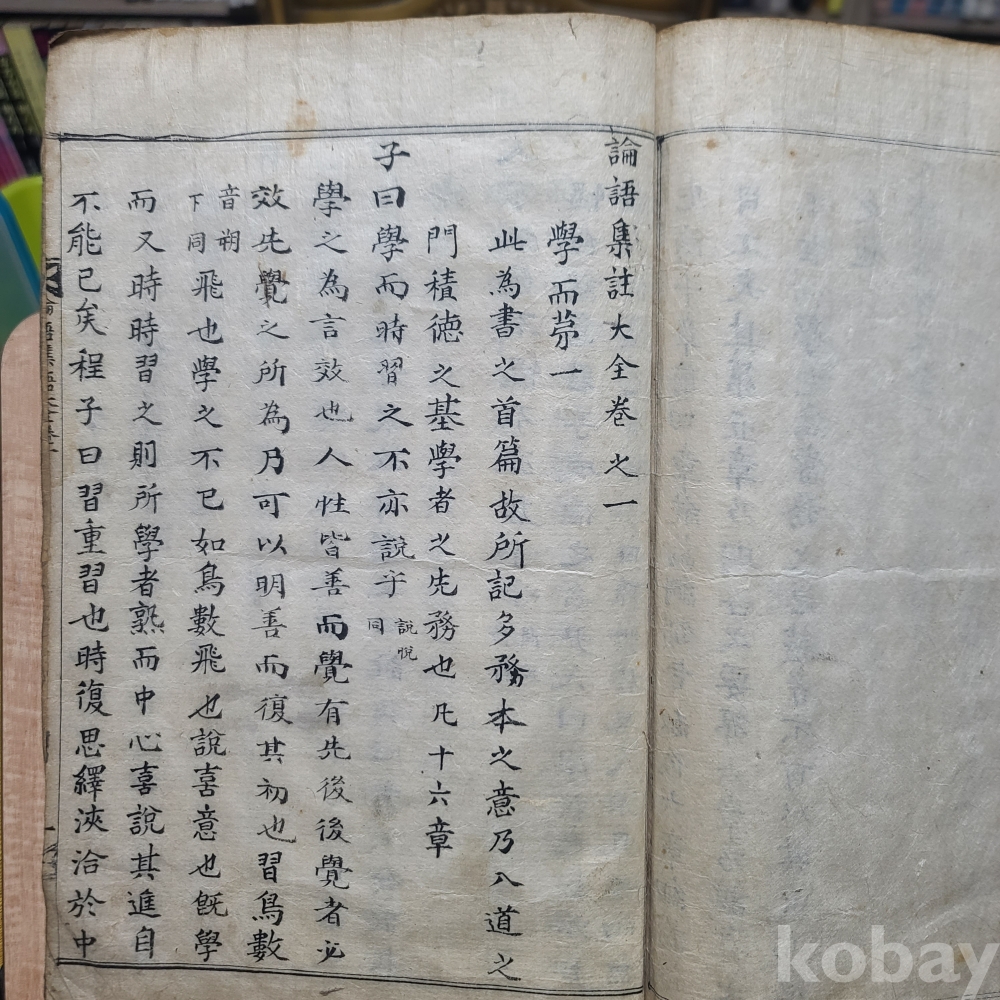 論語集註大全卷之一
學而苐一
此為書之首篇故所記多務本之意乃入道之
門積德之基學者之先務也凡十六章
子曰學而時習之不亦說乎說悅同
學之為言效也人性皆善而覺有先後後覺者必
效先覺之所為乃可以明善而復其初也習鳥數
音朔下同飛也學之不已如鳥數飛也說喜意也既學
而又時時習之則所學者熟而中心喜說其進自
不能已矣程子曰習重習也時復思繹浹洽於中
kobay